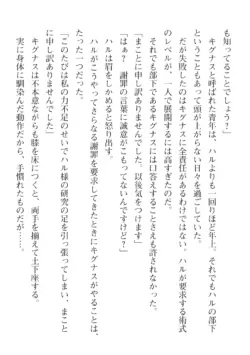 も知ってることでしょう？」
　キグナスと呼ばれた青年は、ハルよりも一回りほど年上。それでもハルの部下
ということもあって頭が上がらない日々を過ごしていた。
　だが失敗したのはキグナスに全責任があるわけではない。ハルが要求する術式
のレベルが、一人で展開するには高すぎたのだ。
　それでも部下であるキグナスには口答えすることさえも許されなかった。
「まことに申し訳ありませんでした。以後気をつけます」
「はぁ？　謝罪の言葉に誠意がこもってないんですけど？」
　ハルは眉をしかめると怒り出した。
　ハルがこうやってさらなる謝罪を要求してきたときにキグナスがやることは、
たった一つだった。
「このたびは私の力不足のせいでハル様の研究の足を引っ張ってしまい、まこと
に申し訳ありませんでした」
　キグナスは不本意ながらも膝を床につくと、両手を揃えて土下座する。
　実に身体に馴染んだ動作だから、手慣れたものだが……。